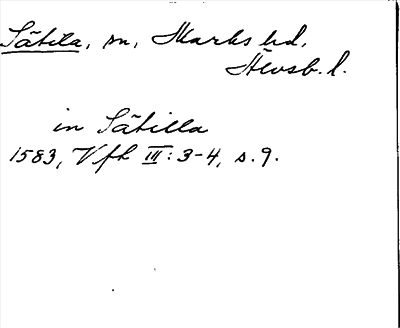 Sätila, sn, Marks hd,
Älvsb. l.
in Sätilla
1583, Vfh III: 3-4, s. 9.